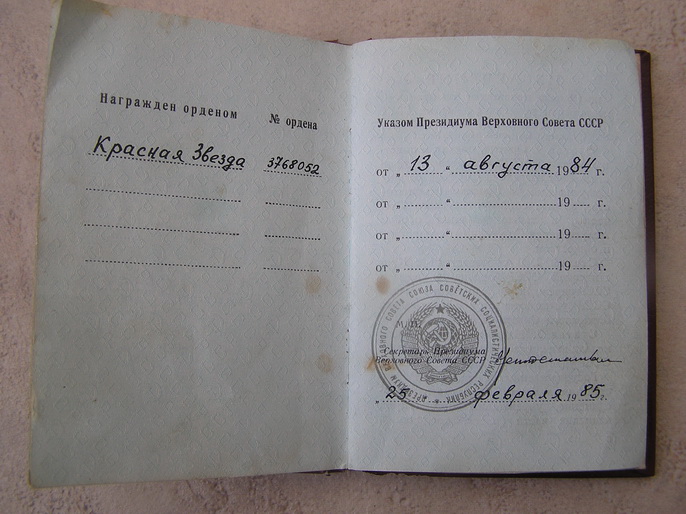 Награжден орденом № ордена
Красная Звезда 3768052
Указом Президиума Верховного Совета СССР
от „ 13 “ августа 1984 г.
от „ “ 19 г.
от „ “ 19 г.
от „ “ 19 г.
М.П.
Секретарь Президиума
Верховного Совета СССР
„ 25 февраля 1985 г.
ПРЕЗИДИУМ ВЕРХОВНОГО СОВЕТА СОЮЗА СОВЕТСКИХ СОЦИАЛИСТИЧЕСКИХ РЕСПУБЛИК